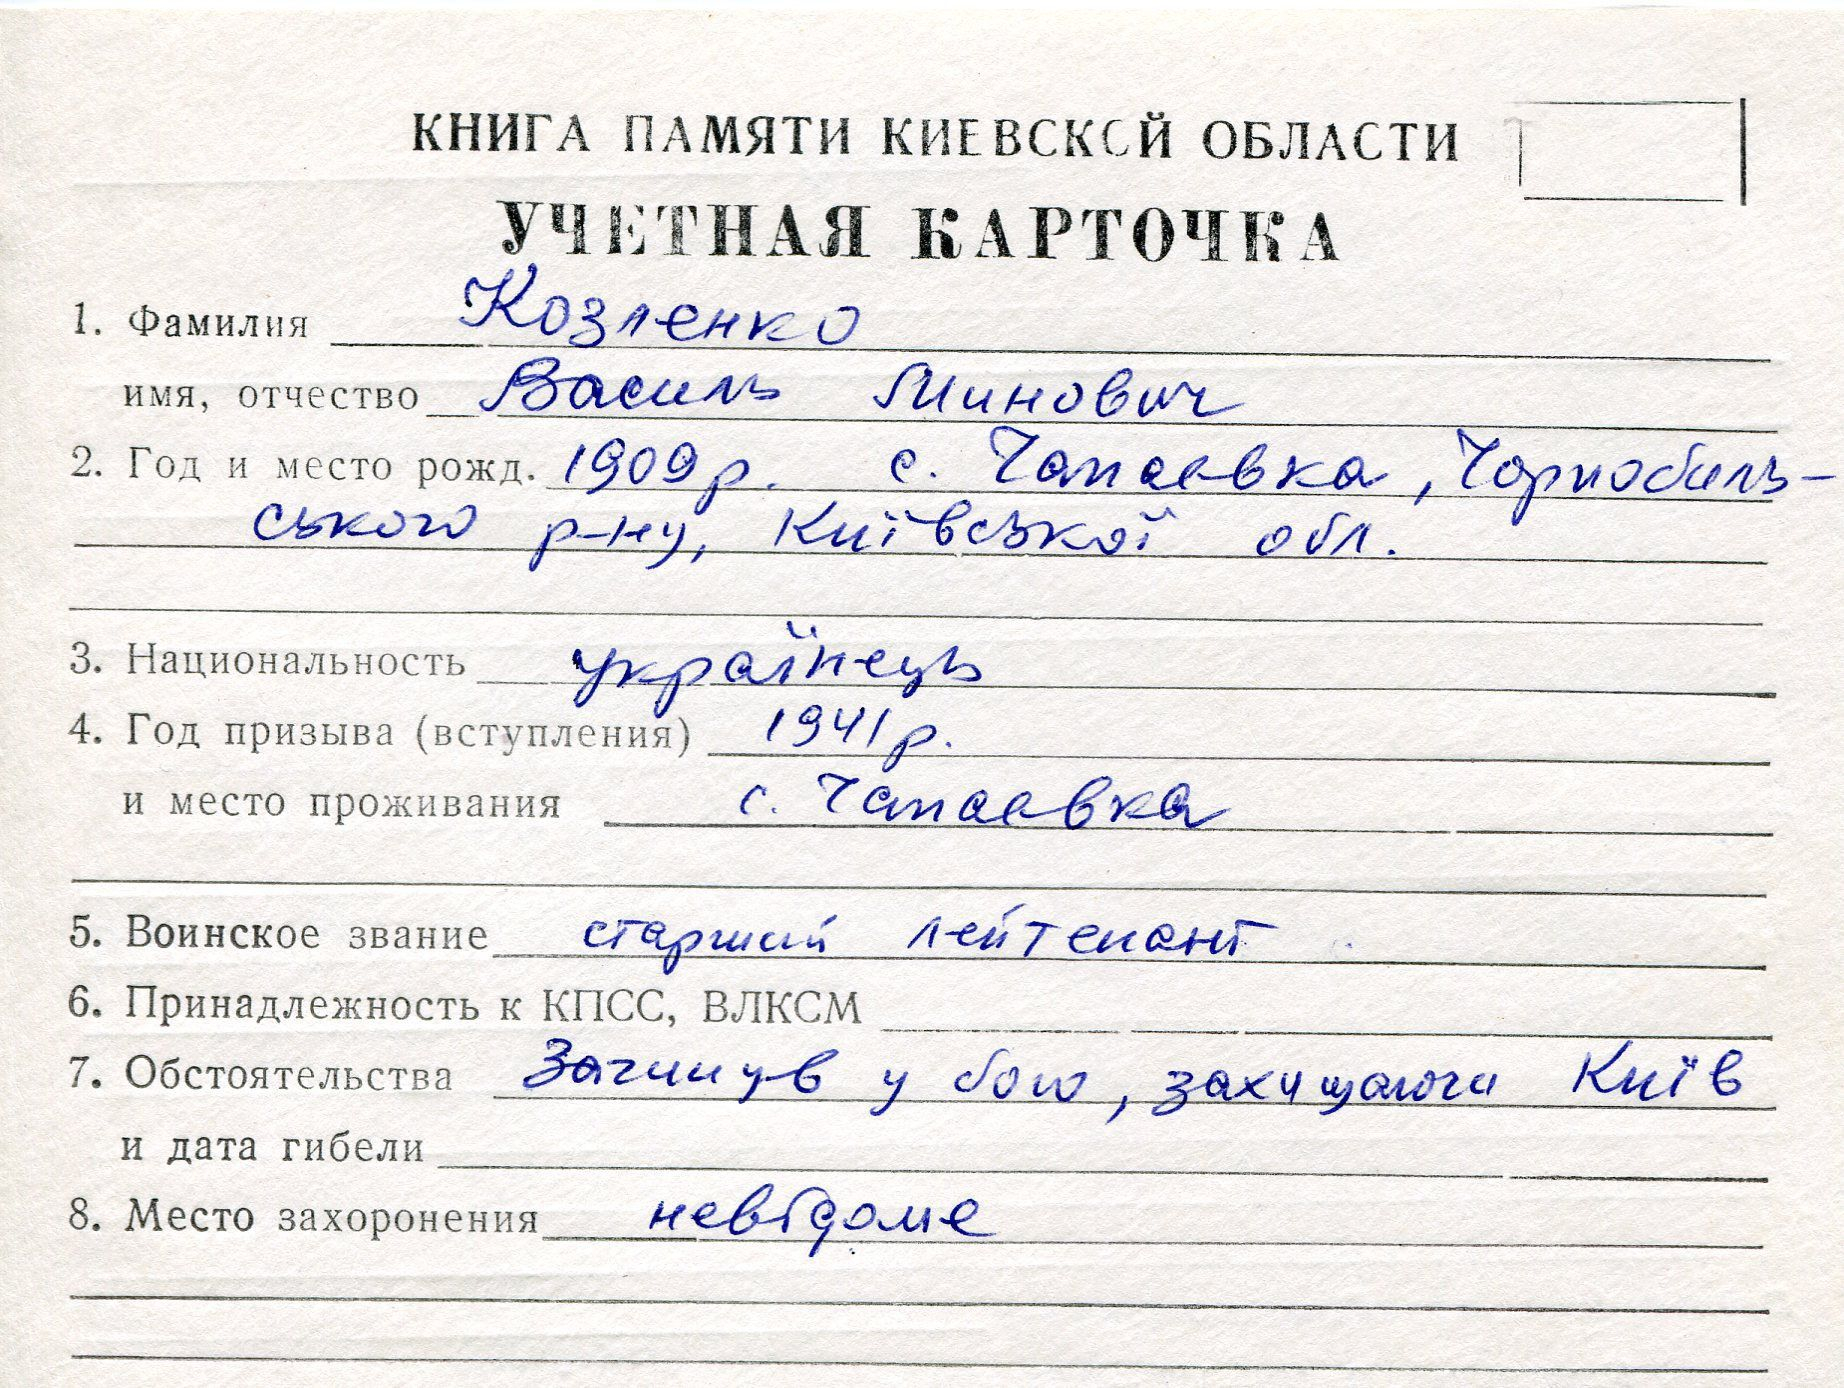 КНИГА ПАМЯТИ КИЕВСКОЙ ОБЛАСТИ
УЧЕТНАЯ КАРТОЧКА
1. Фамилия Козленко
имя, отчество Василь Минович
2. Год и место рожд. 1909 р. с. Чапаевка, Чорнобиль-
ського р-ну, Київської обл.
3. Национальность українець
4. Год призыва (вступления) 1941 р.
и место проживания с. Чапаевка
5. Воинское звание старший лейтенант
6. Принадлежность к КПСС, ВЛКСМ
7. Обстоятельства Загинув у бою, захищаючи Київ
и дата гибели
8. Место захоронения невідоме